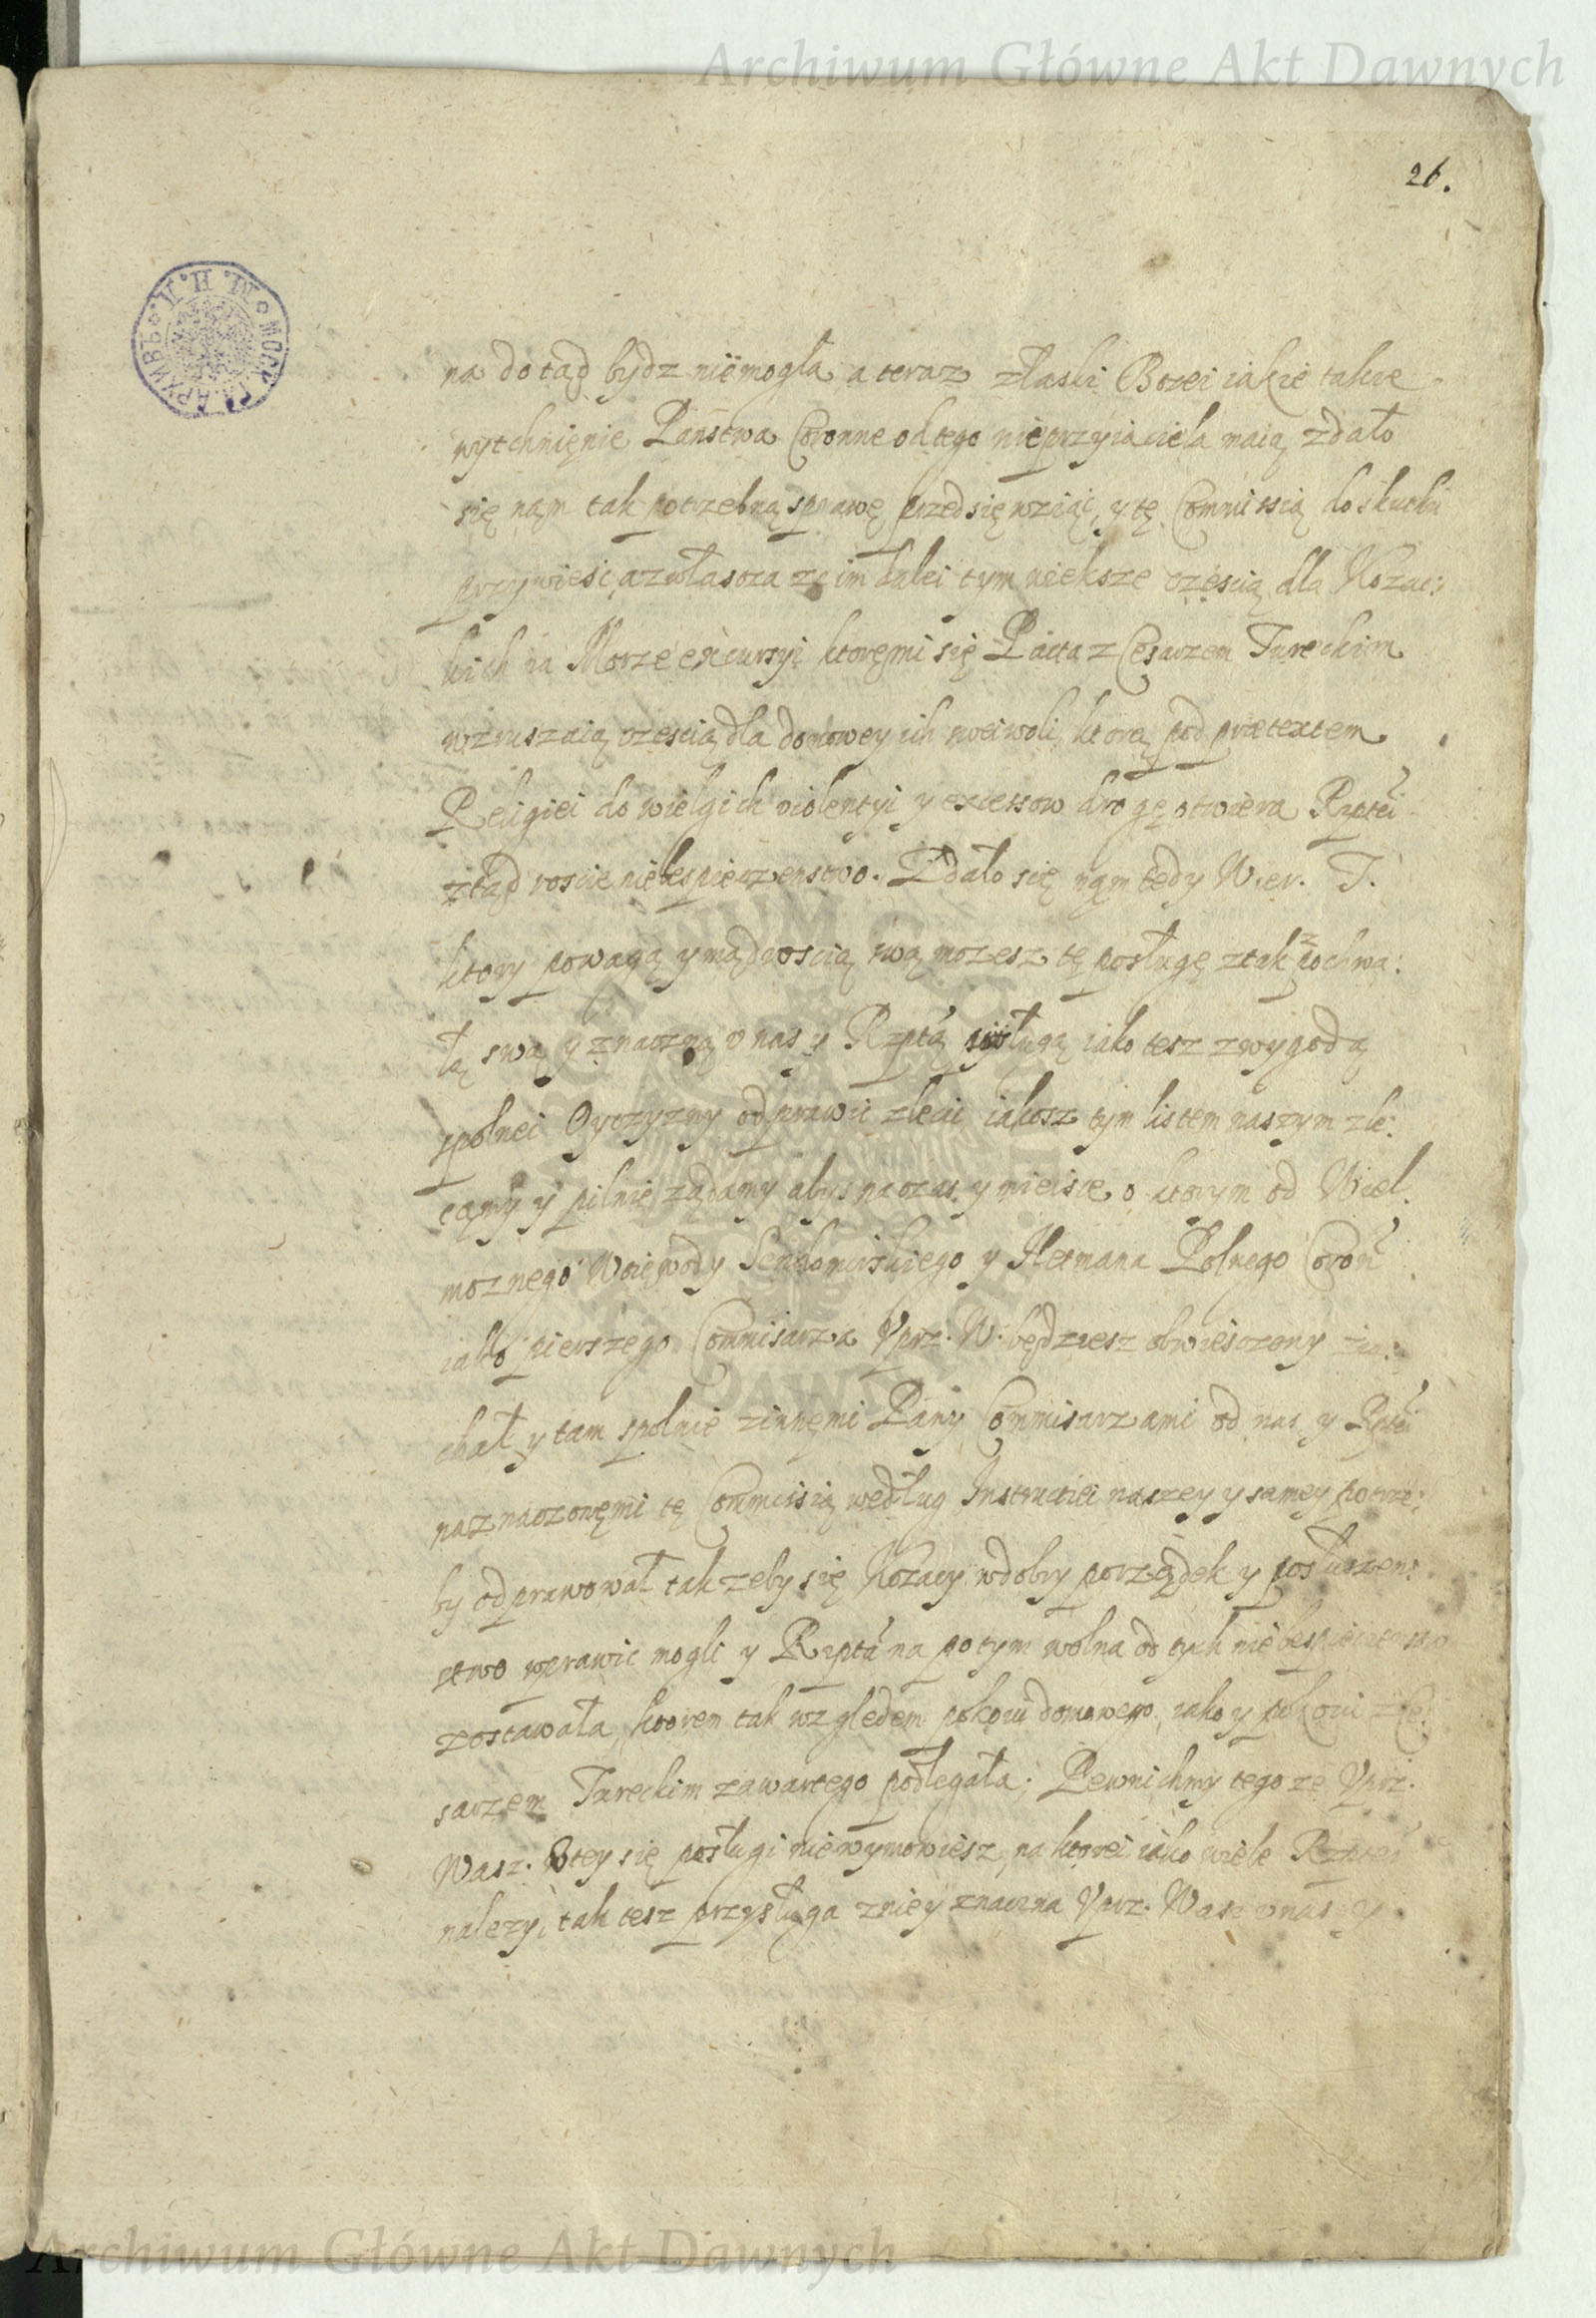 Archiwum Główne Akt Dawnych
26.
М.И.Д. МОСК. ГЛ. АРХИВЪ
na dotąd bydz niemogła, a teraz złaski Bozei iakie takie
wytchnięnie Państwa Coronne od tego nieprzyiaciela maią, zdało
się nąm tak potrzebną sprawę przedsięwziąć, y tę Commissią do skutku
przywieść, azwłascza ze im dalei tym wieksze częścią dla Kozac:
kich na Morze excursyi ktoręmi się Pacta z Cesarzem Tureckim
wzruszaią częścią dla domowey ich sweiwoli, ktorą pod prætextem
Religiei do wielgich violentyi y excessow drogę otwiera Rzptei
ztąd roście niebespieczenstwo. Zdało się nąm tedy W.er. T.
ktory powagą y mądroscią swą mozesz tę posługę ztak z pochwa:
łą swą y znaczną v nas y Rzptą przysługą iako tesz zwygodą
spolnei Oyczyzny odprawić zlecić iakosz tym listem naszym zle:
cąmy y pilnie ządamy abyś na czas y mieisce o ktorym od Wiel.
moznego Woięwody Sendomirskiego y Hetmana Polnego Coron
iako pierszego Commisarza Vprz. W. będziesz obwiesczony zia:
chał y tam spolnie zinnęmi Pany Commisarzami od nas y Rptei
naznaczonęmi tę Commissią według Instructiei naszey y samey potrze:
by odprawował tak zeby się Kozacy wdobry porządek y posłuszen:
stwo wprawic mogli y Rzptá na potym wolna od tych niebespieczenstw
zostawała, ktorem tak względem pokoiu domowego, iako y pokoiu z Ce:
sarzem Tureckim zawartego podlegała; Pewnichmy tego ze Vprz.
Wasz. Otey się posługi niewymowiesz, na ktorei iako wiele Rzptei
nalezy, tak tesz przysługa zniey znaczna Vprz. Wasz vnas y
Archiwum Główne Akt Dawnych